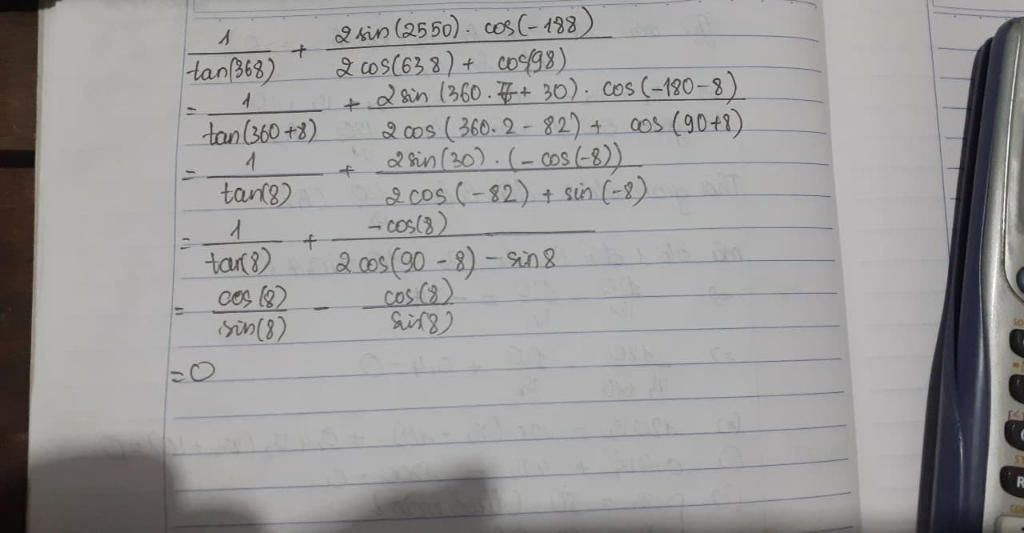 1/tan(368) + 2sin(2550). cos(-188)/2cos(638) + cos(98)
= 1/tan(360+8) + 2sin(360.7+30). cos(-180-8)/2cos(360.2-82) + cos(90+8)
= 1/tan(8) + 2sin(30).(-cos(-8))/2cos(-82) + sin(-8)
= 1/tan(8) + -cos(8)/2cos(90-8) - sin8
= cos(8)/sin(8) - cos(8)/sin(8)
= 0